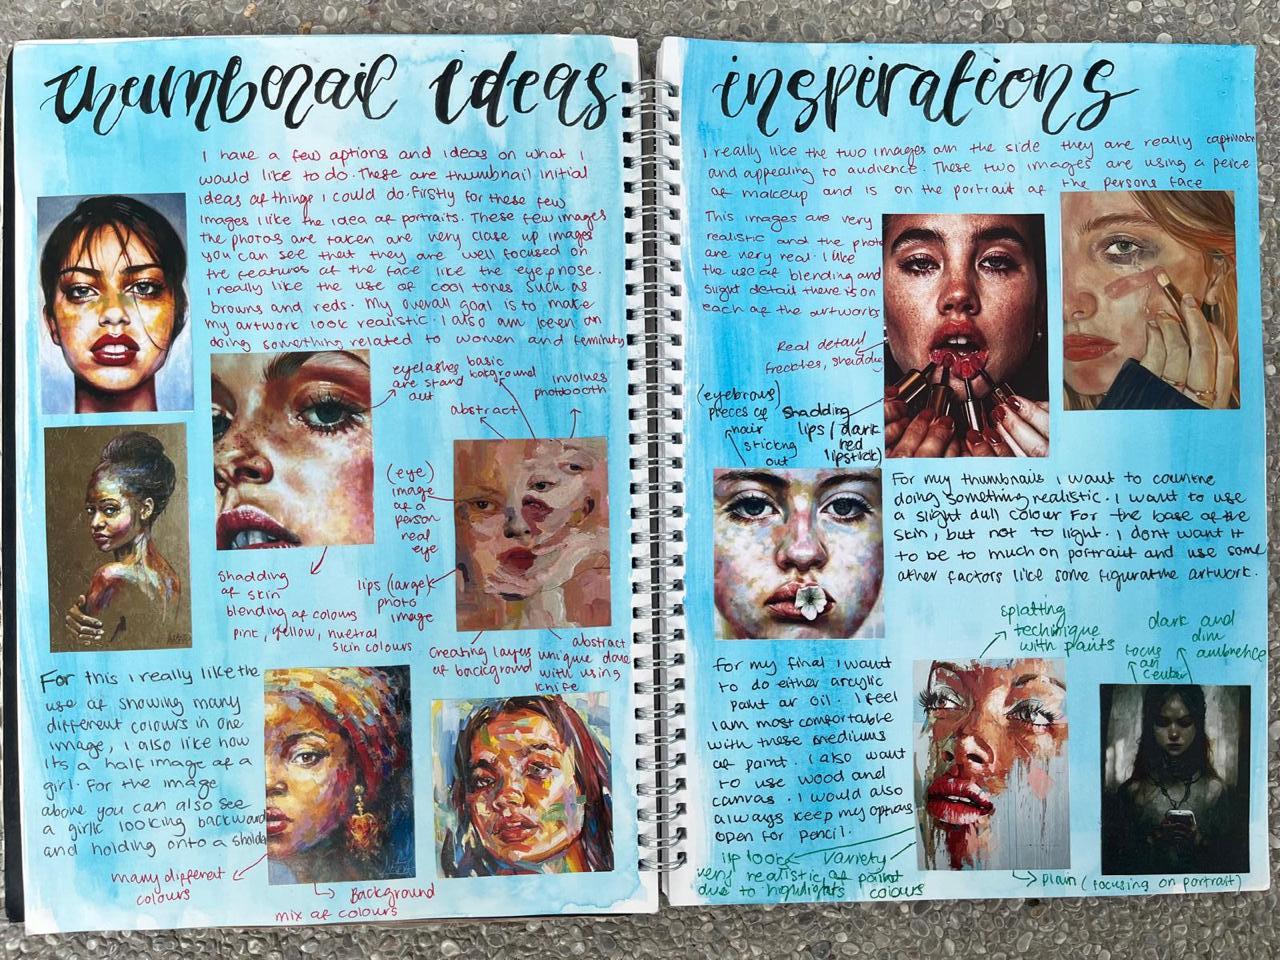 thumbnail ideas
I have a few options and ideas on what I
would like to do. These are thumbnail initial
ideas of things I could do. Firstly for these few
images I like the idea of portraits. These few images
the photos are taken are very close up images
you can see that they are well focused on
the features of the face like the eye, nose.
I really like the use of cool tones such as
browns and reds. My overall goal is to make
my artwork look realistic. I also am keen on
doing something related to women and feminity
eyelashes
are stand
out
basic
background
involves
photobooth
abstract
(eye)
image
of a
person
real
eye
lips (large)
photo
image
shadding
of skin
blending of colours
pink, yellow, nuetral
skin colours
Creating layers
of background
abstract
unique done
with using
knife
For this I really like the
use of showing many
different colours in one
image, I also like how
its a half image of a
girl. For the image
above you can also see
a girl looking backward
and holding onto a
many different
colours
Background
mix of colours
inspirations
I really like the two images on the side they are really
and appealing to audience. These two images are using a peice
of makeup and is on the portrait of the persons face
This images are very
realistic and the photo
are very real. I like
the use of blending and
slight detail there is on
each of the artworks
Real detail
freckles, shadding
(eyebrows)
pieces of
hair
sticking
out
shadding
lips / dark
red
lipstick)
For my thumbnails I want to
doing something realistic. I want to use
a slight dull colour for the base of the
skin, but not to light. I dont want it
to be to much on portrait and use some
other factors like some figurative artwork.
splatting
technique
with paints
dark and
dim
ambience
focus
on
center
For my final I want
to do either arcylic
paint or oil. I feel
I am most comfortable
with these mediums
of paint. I also want
to use wood and
canvas. I would also
always keep my options
open for pencil.
lip look
very realistic
due to highlights
variety
of paint
colours
plain (focusing on portrait)